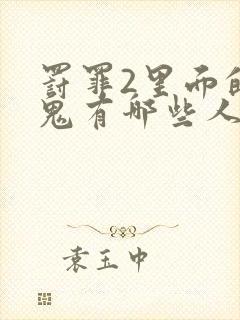 罚罪2里面的
鬼有哪些人
袁玉中